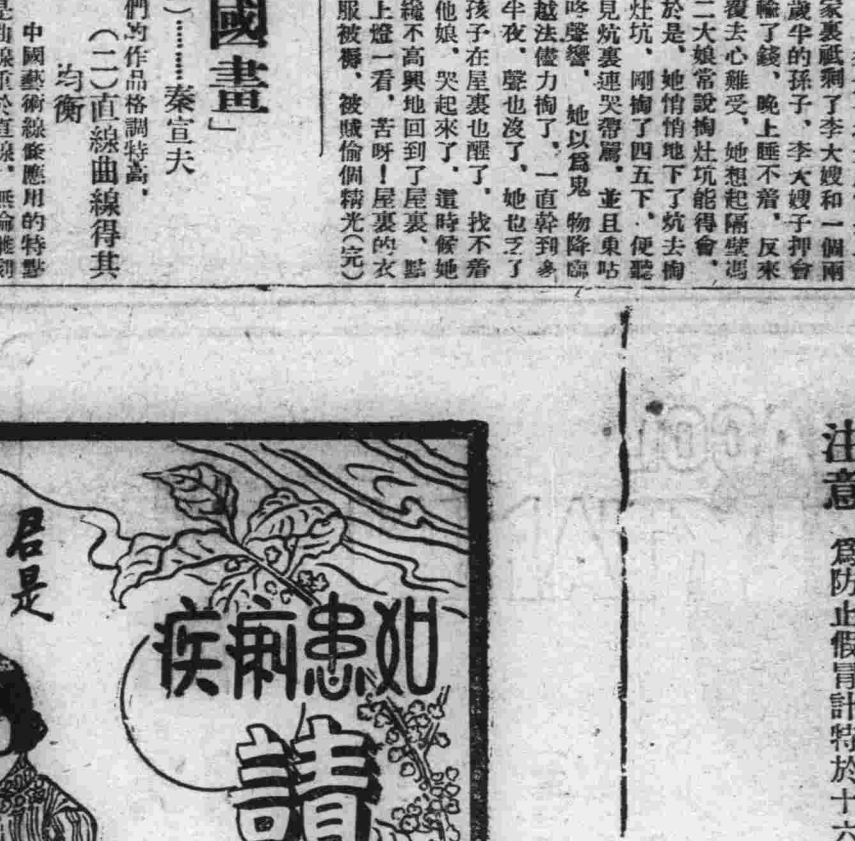 家裏祇剩了李大嫂和一個兩
歲半的孫子、李大嫂子押會
輸了錢、晚上睡不着、反來
覆去心難受、她想起隔壁馮
二大娘常說掏灶坑能得會、
於是、她悄悄地下了炕去掏
灶坑、剛掏了四五下、便聽
見炕裏連哭帶罵、並且東咕
咚聲響、她以爲鬼物降臨
越法儘力掏了、一直幹到
半夜、聲也沒了、她也乏了
孩子在屋裏也醒了、找不着
他娘、哭起來了、這時候她
纔不高興地回到了屋裏、點
上燈一看、苦呀！屋裏的衣
服被褥、被賊偷個精光(完)
國畫」
)………秦宣夫
們的作品格調特高、
(二)直線曲線得其
均衡
中國藝術線條應用的特點
是曲線重於直線、無論雕刻
注意
爲防止假冒計特於十六
如患痢疾
請
君是